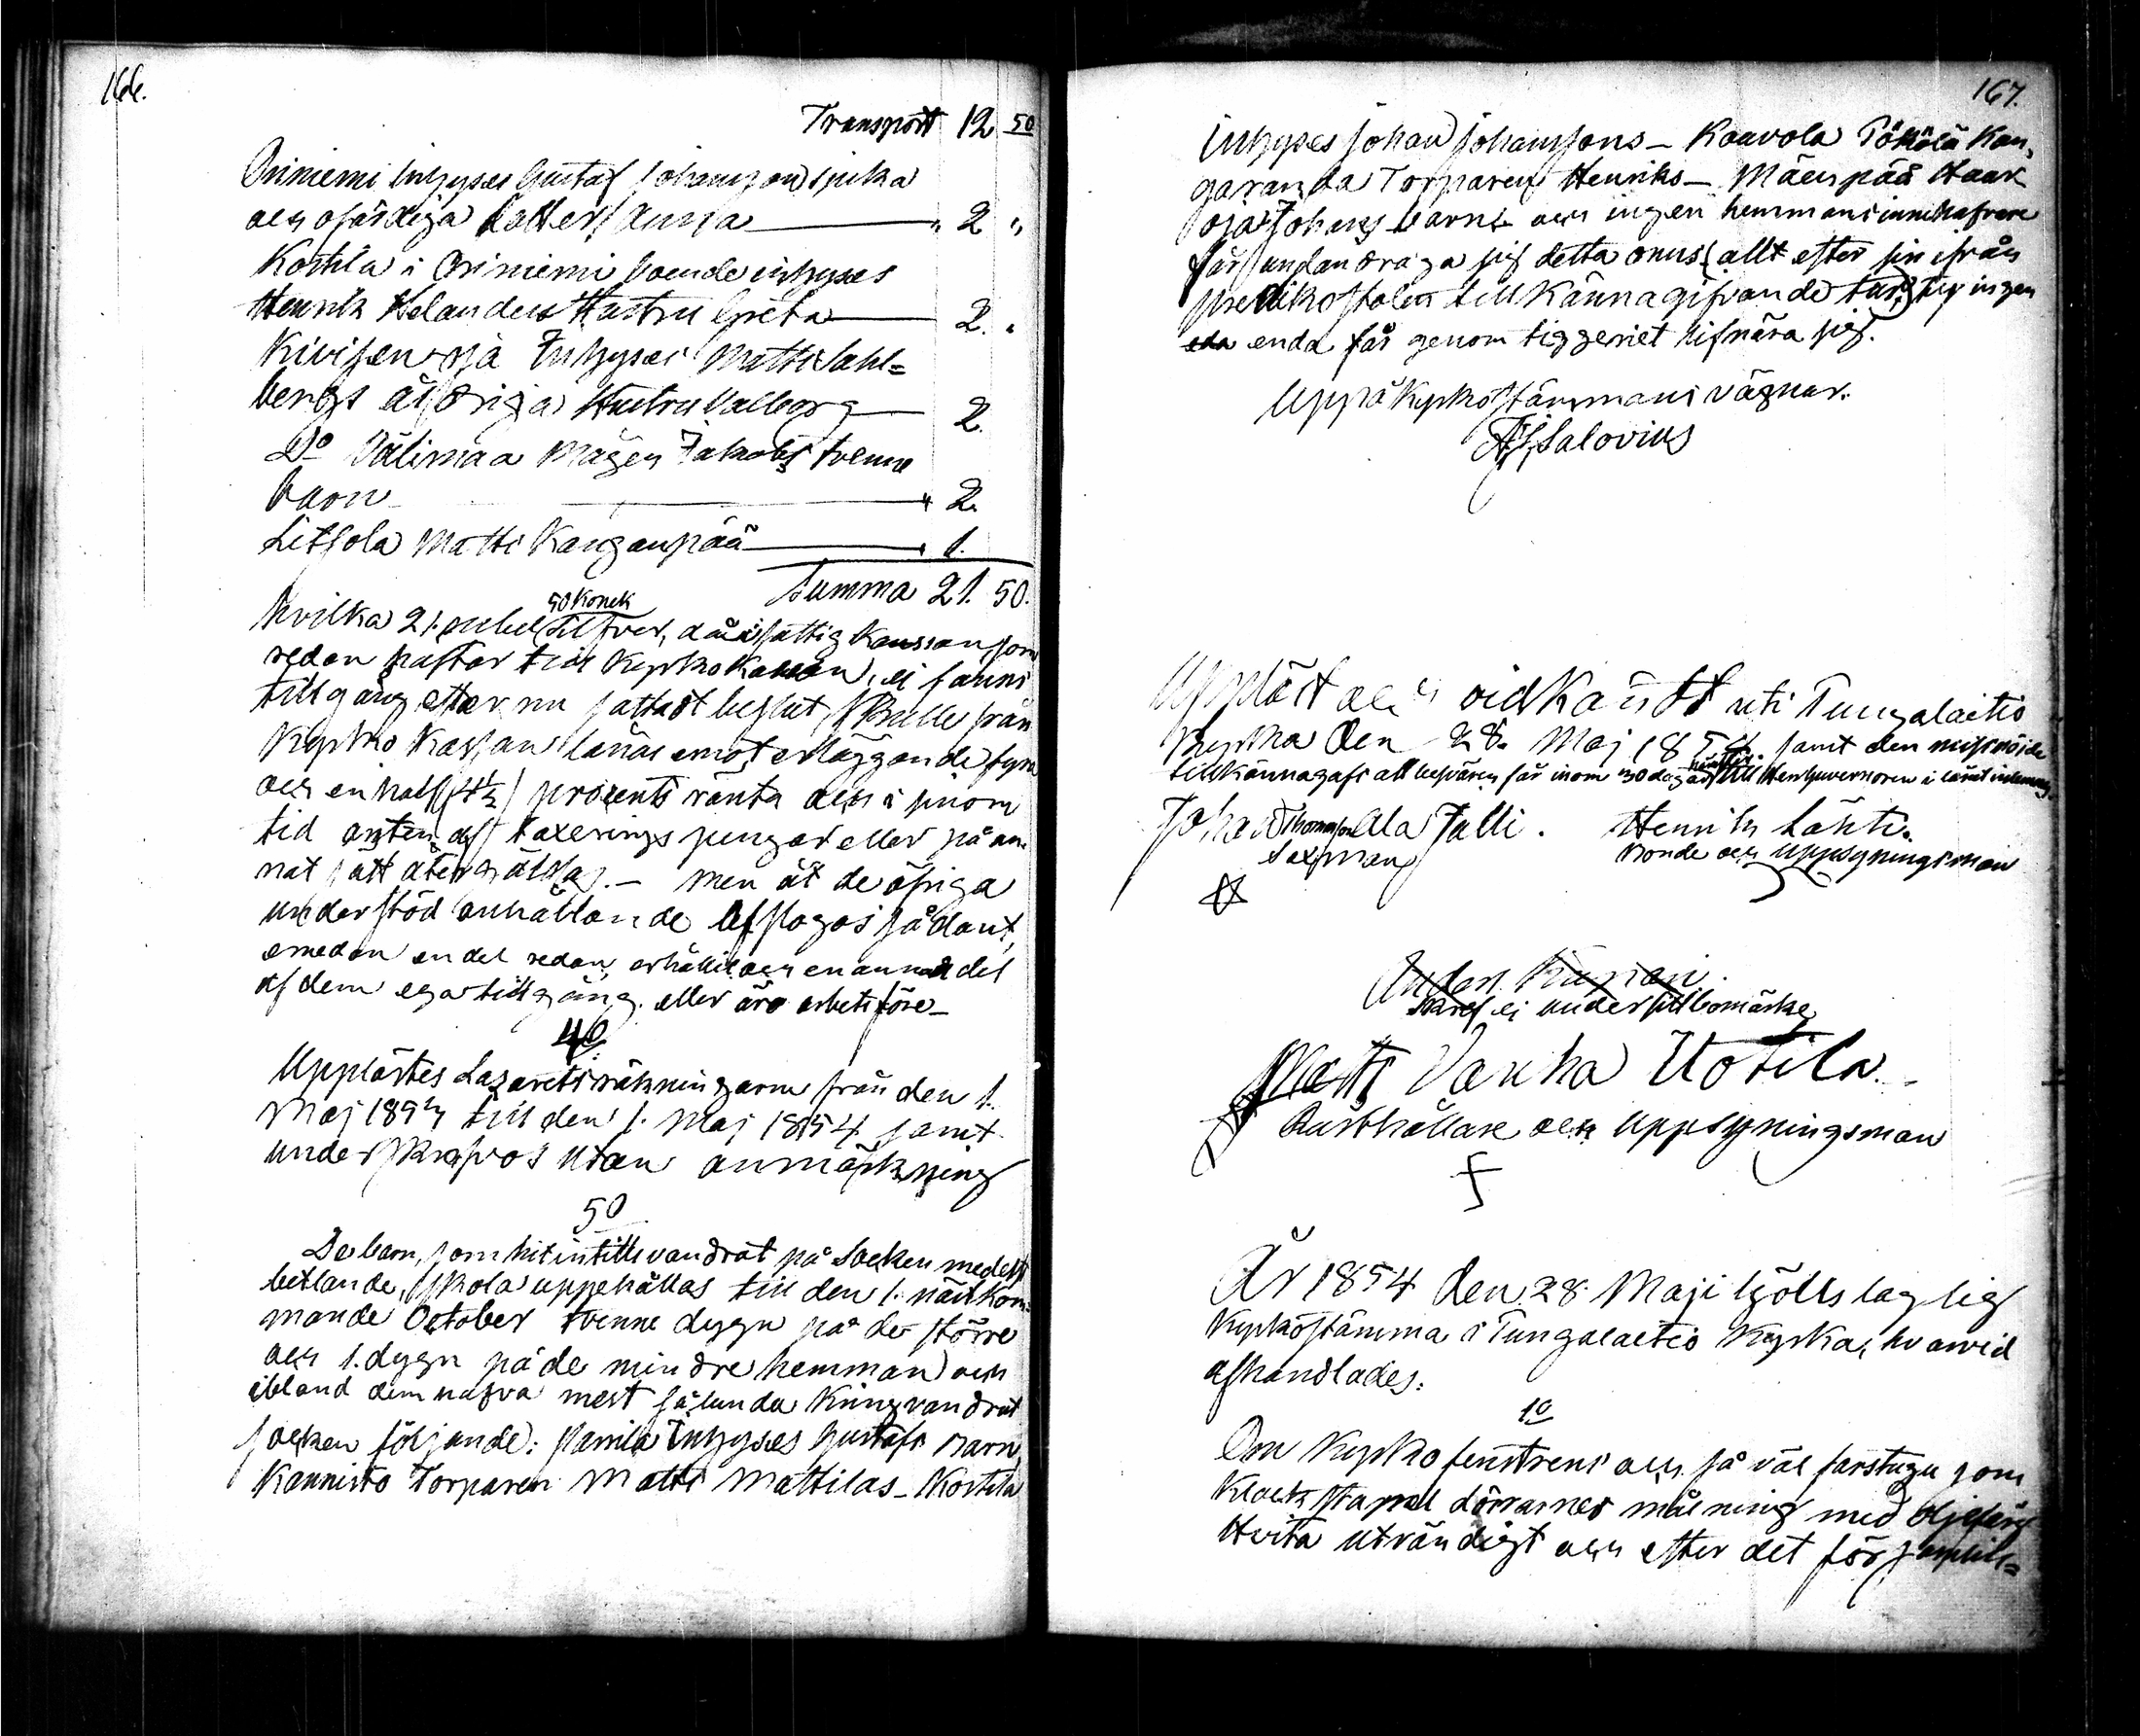 166.
Transport 12 50
Oriniemi Inhyses Gustaf Johansson sjuka
och ofärdiga dotter Anna " 2 "
Kostila i Oriniemi boende inhyses
Henrik Helanders Hustru Greta 2. "
Kivisenoja Inhyses Matts Sahl=
bergs åldriga Hustru Valborg 2.
Do Välimaa Mågen Jakobs tvenne
barn " 2.
Letsola Matti Kanganpää " 1.
Summa 21. 50.
50 Kopek
hvilka 21. rubel Silfver, då i fattig Kassan, som
redan häftar till Kyrko Kassan, ej fanns
tillgång efter nu fattadt beslut, skulle från
Kyrko Kassan lånas emot erläggande fyra
och en half (4½) procents ränta och i sinom
tid anten af taxerings pengar eller på an-
nat sätt återgäldas. — Men åt de öfriga
understöd anhållande afslogos sådant,
emedan en del redan erhållit och en annan del
af dem ega tillgång eller äro arbetsföre —
4o
Upplästes Lazarettsräkningarne från den 1.
Maj 1853 till den 1. Maj 1854 samt
underskrefvos utan anmärkning
5o
De barn, som hitintills vandrat på Socken medelst
betlande, skola uppehållas till den 1. nästkom=
mande October tvenne dygn på de större
och 1. dygn på de mindre hemman) och
ibland dem hafva mest sålunda kringvandrat
socken följande: Inhyses Gustafs barn,
Kannisto Torparen Matts Mattilas — Kostila
167.
Inhyses Johan Johanssons — Kaavola Pökölä Kan,
garanda Torparen Henriks — Mäenpää Haar
oja Johans barn — och ingen hemmansinnehafvare
får undandraga sig detta onus, allt efter sin ifrån
predikostolen tillkännagifvande tur, ty ingen
enda får genom tiggeriet lifnära sig.
Uppå Kyrkostämmans vägnar.
Salovius
Uppläst och vidkändt uti Tungalaitio
Kyrka den 28. Maj 1854. samt den missnöjde
tillkännagafs att besvären får inom 30 dagar till Herr Guvernören i länet inlemnas.
Johan Thomasson Ala Jalli. Henrik Lähti.
Sexman Bonde och Uppsyningsman
Skref ej under sitt bomärke
Matts Vanha Uotila.
Rusthållare och Uppsyningsman
År 1854 den 28 Maji hölls laglig
Kyrkostämma i Tungalaitio Kyrka, hvarvid
afhandlades:
1o
Om Kyrko fenstrens och så väl farstugu som
Klockstapel dörrarnes målning med oljefärg
Hvita utvändigt och efter det